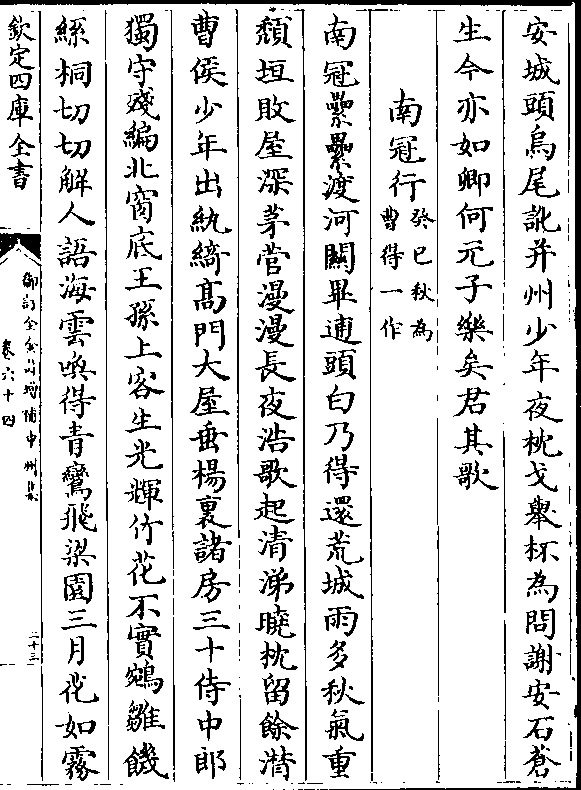 安城頭烏尾訛并州少年夜枕戈舉杯為問謝安石蒼
生今亦如卿何元子樂矣君其歌
南冠行癸巳秋為曹得一作
南冠纍纍渡河關畢逋頭白乃得還荒城雨多秋氣重
頹垣敗屋深茅菅漫漫長夜浩歌起清涕曉枕留餘潸
曹侯少年出紈綺髙門大屋垂楊裏諸房三十侍中郎
獨守殘編北窗底王孫上客生光輝竹花不實鵷雛饑
絲桐切切解人語海雲喚得青鸞飛梁園三月花如霧
欽定四庫全書
御訂全金詩增補中州集
卷六十四
二十三